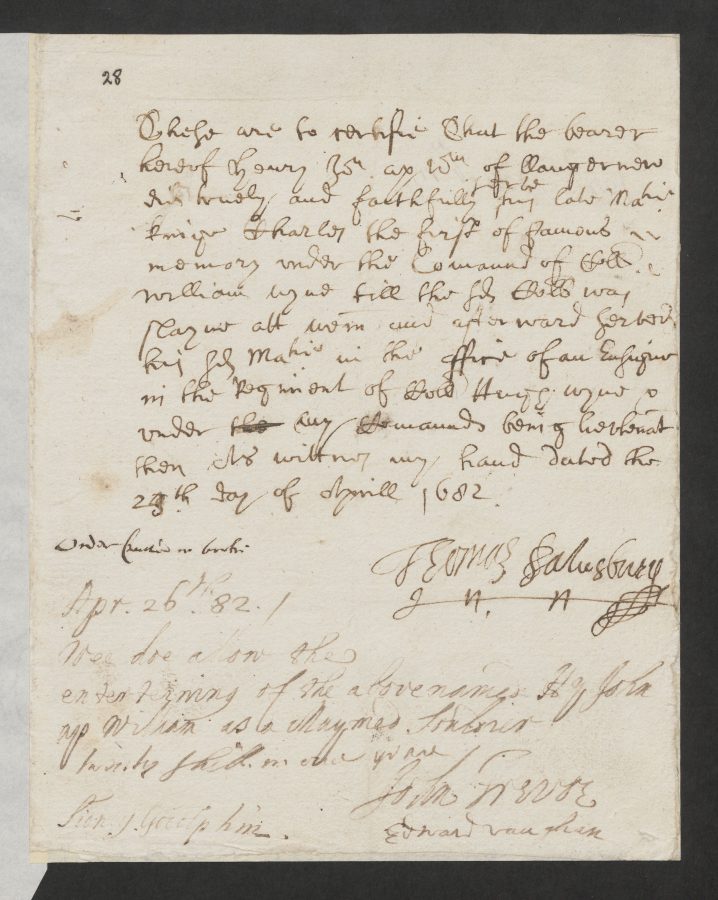 28
These are to certifie That the bearer
hereof Henry Jon ap Wm of llangernew
did truely and faithfully serve his late Matie
kinge Charles the first of famous
memory under the Comaund of Coll
William wyne till the sd Coll was
slayne att wem and afterward served
his sd Matie in the office of an Ensigne
in the Regiment of Coll Hugh wyne
under the my Comaund being lieutenat
then As wittnes my hand dated the
24th day of Aprill 1682
Order
Thomas Salusbury
Apr. 26th 82.
Wee doe allow the
entertayning of the abovenamed Hy John
ap William as a Maymed Souldier
twenty shill. in one yeare
John Trevor
Edward Vaughan